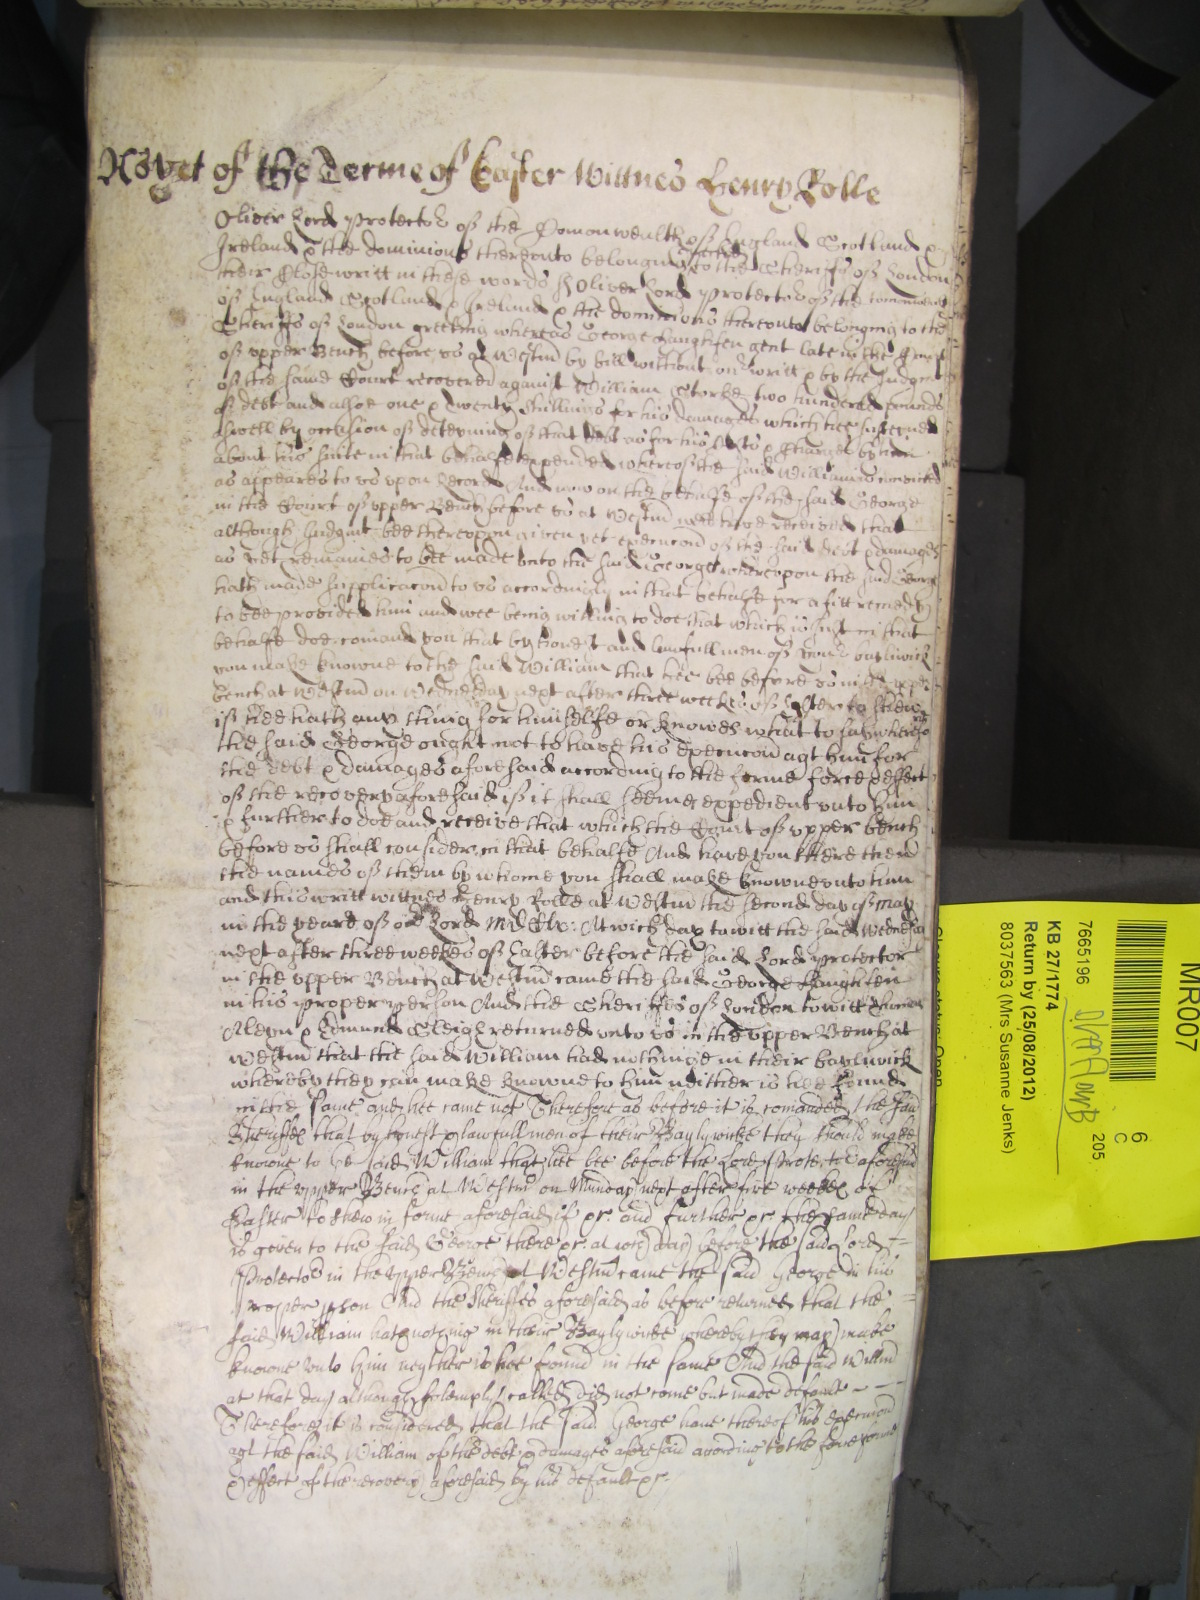 As yet of the Terme of Easter Wittnes Henry Rolle
Oliver Lord Protector of the Comonwealth of England Scotland &
Ireland & the dominions thereunto belonging directed to the Sheriffs of London
their Close writt in these words ss Oliver Lord Protector of the Commonwealth
of England Scotland & Ireland & the dominions thereunto belonging to the
Sheriffs of London greeting whereas George gent late in the Court
of upper Bench before us at Westm by bill without our writt & by the Judgmt
of the same Court recovered against William Storke two hundered pounds
of debt and alsoe one & twenty shillings for his damages which hee susteyned
aswell by occasion of deteyning of that debt as for his Costs & Charges by him
about his suite in that behalfe expended whereof the said William is convicted
as appeares to us upon Record And now on the behalfe of the said George
in the Court of upper Bench before us at Westm wee have received that
although Judgmt bee thereupon given yet execucon of the said debt & damages
as yet remaines to bee made unto the said George whereupon the said George
hath made supplicacon to us accordingly in that behalfe for a fitt remedy
to bee provided him and wee being willing to doe that which is just in that
behalfe doe comand you that by honest and lawfull men of your bayliwick
you make knowne to the said William that hee bee before us in the upper
bench at Westm on Wednesday next after three weekes of Easter to shew
if hee hath any thing for himselfe or knowes what to say wherefore
the said George ought not to have his execucon agt him for
the debt & damages aforesaid according to the forme force & effect
of the recovery aforesaid if it shall seeme expedient unto him
& further to doe and receive that which the Court of upper bench
before us shall consider in that behalfe And have you there then
the names of them by whome you shall make knowne unto him
and this writt wittnes Henry Rolle at Westm the second day of may
in the yeare of our Lord At wich day to witt the said Wednesday
next after three weekes of Easter before the said Lord Protector
in the upper Bench at Westm came the said George
in his proper person And the Sheriffes of London to witt Thomas
Aleyn & Edmund Sleigh returned unto us in the upper Bench at
Westm that the said William had nothinge in their bayliwick
whereby they can make knowne to him neither is hee found
in the same and hee came not Therefore as before it is comanded the said
Sheriffes that by honest & lawfull men of their Baylywicke they should make
knowne to the said William that hee bee before the Lord Protector aforesaid
in the upper Bench at Westm on Munday next after five weekes of
Easter to shew in forme aforesaid if &c. and further &c. the same day
is given to the said George there &c. at wch day before the said Lord
Protector in the upper Bench at Westm came the said George in his
proper pson And the Sheriffes aforesaid as before returned that the
said William hath nothing in their Baylywicke whereby they may make
knowne unto him neyther is hee found in the same And the said Willm
at that day although solemply called did not come but made default
Therefore it is considered that the said George have thereof his execucon
agt the said William of the debt & damages aforesaid according to the force forme
& effect of the recovery aforesaid by his default &c.
MR007
6
C
205
7665196
KB 27/1774
Return by (25/08/2012)
8037563 (Mrs Susanne Jenks)
Closure status: Open